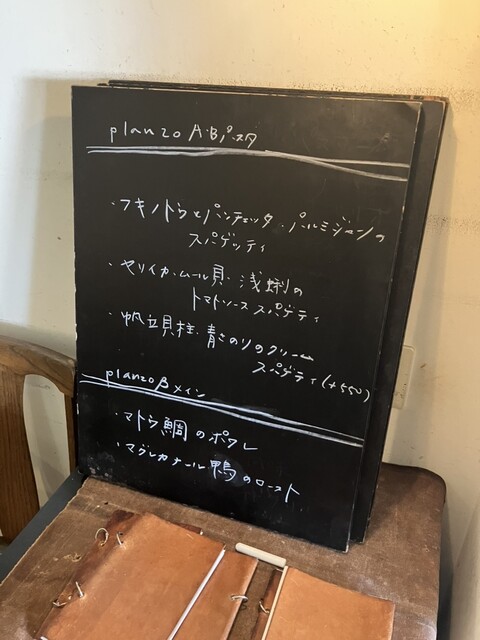 planzo A・Bパスタ
・フキノトウとパンチェッタ、パルミジャーノの
スパゲッティ
・ヤリイカ・ムール貝・浅蜊の
トマトソース スパゲティ
・帆立貝柱・青さのりのクリーム
スパゲティ(+550)
planzo B メイン
・マトウ鯛のポワレ
・マグレカナール鴨のロースト